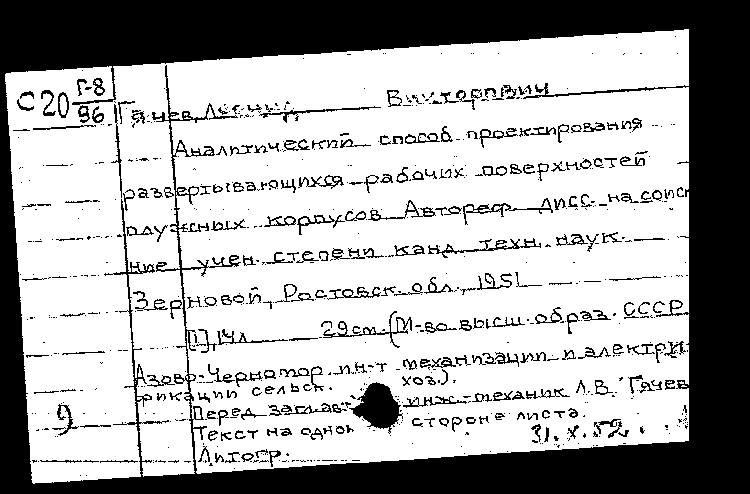 С20 Г-8/96
Гячев, Леонид Викторович
Аналитический способ проектирования
развертывающихся рабочих поверхностей
плужных корпусов Автореф. дисс. на соиск
ние учен. степени канд. техн. наук.
Зерновой, Ростовск. обл., 1951
[1], 14л 29см. (М-во высш. образ. СССР
Азово-Черномор. ин-т механизации и электри
фикации сельск. хоз.).
Перед заглав инж.-механик Л.В. Гячев
Текст на одной стороне листа.
Литогр.
9
31.X.52.